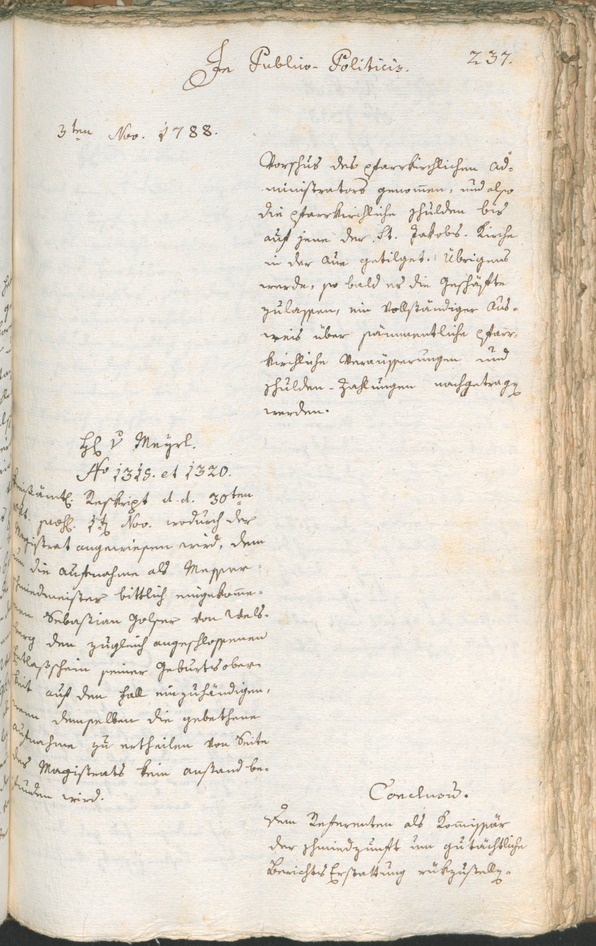 In Publico-Politicis.
237.
3ten Nov. 1788.
Vorschus des pfarrkirchlichen Ad-
ministrators genommen, und also
die pfarrkirchliche Schulden bis
auf jene der St. Jakobs-Kirche
in der Aue getilget. Übrigens
werde, so bald es die Geschäfte
zulassen, ein vollständiger Aus-
weis über sämmentliche pfarr-
kirchliche Veräusserungen und
Schulden-Zahlungen nachgetragen
werden.
H. v Meyrl.
No 1315. et 1320.
Kreisämtl. Reskript d. d. 30ten
praes. Nov. wodurch der
Magistrat angewiesen wird, dem
um die Aufnahme als Messer-
schmiedmeister bittlich eingekomme-
nen Sebastian Golser von Wels-
berg den zugleich angeschlossenen
Entlaßschein seiner Geburtsober-
keit auf den Fall einzuhändigen,
wenn demselben die gebethene
Aufnahme zu ertheilen von Seite
des Magistrats kein Anstand be-
funden wird.
Conclusum.
Dem Referenten als Kommissär
der Schmiedzunft um gutächtliche
Berichts Erstattung rükzustellen.